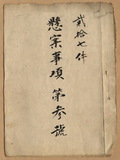 貳拾七件
懸案事項 第参號